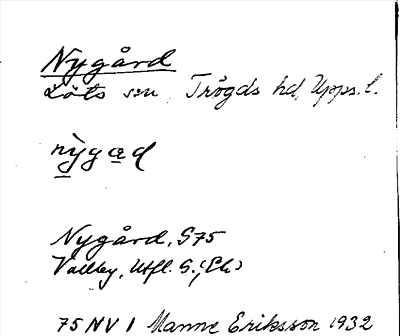 Nygård
Löts sn. Trögds hd, Upps. l.
nỳgađ
Nygård, S75
Vallby, Utfl. S. (Ek)
75 NV 1 Manne Eriksson 1932